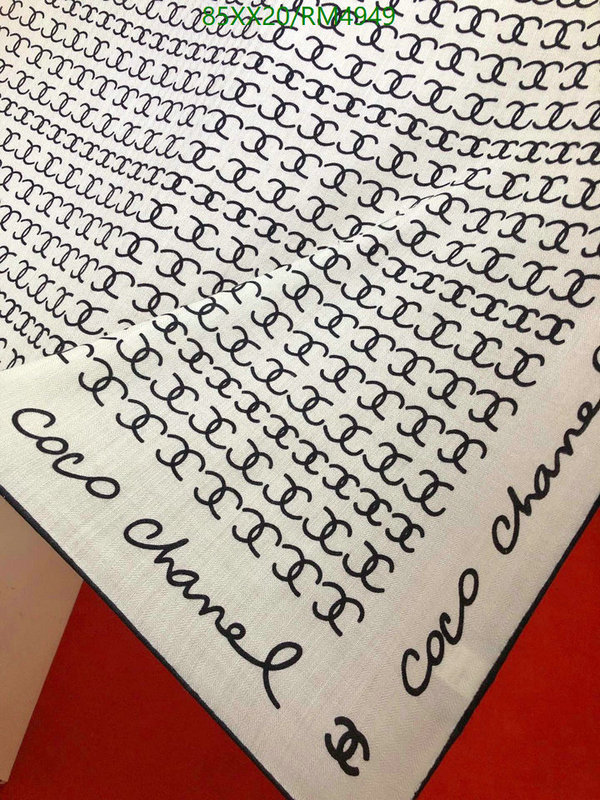 85XX20/RM4949
coco chanel
coco chanel